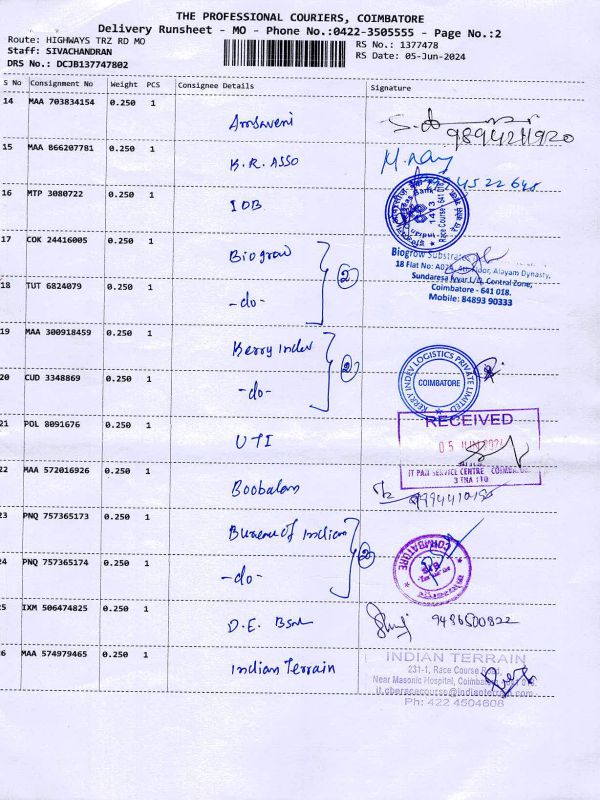 THE PROFESSIONAL COURIERS, COIMBATORE
Delivery Runsheet - MO - Phone No.:0422-3505555 - Page No.:2
Route: HIGHWAYS TRZ RD MO
RS No.: 1377478
Staff: SIVACHANDRAN
RS Date: 05-Jun-2024
DRS No.: DCJB137747802
S No Consignment No Weight PCS Consignee Details Signature
14 MAA 703834154 0.250 1
9894211920
15 MAA 866207781 0.250 1 K.R. ASSO
16 MTP 3080722 0.250 1 IOB
1413
Race Course
17 COK 24416005 0.250 1 Biogrow 2
Biogrow Substrates
18 Flat No: Floor, Alayam Dynasty,
18 TUT 6824079 0.250 1 -do-
Central Zone,
Coimbatore - 641 018.
Mobile: 84893 90333
19 MAA 300918459 0.250 1 Kerry Indev 2
KERRY INDEV LOGISTICS PRIVATE LIMITED
COIMBATORE
20 CUD 3348869 0.250 1 -do-
RECEIVED
05 JUN 2024
21 POL 8091676 0.250 1 UTI
IT PAN SERVICE CENTRE
22 MAA 572016926 0.250 1 Boobalan
23 PNQ 757365173 0.250 1 Bureau of Indian 2
COIMBATORE
24 PNQ 757365174 0.250 1 -do-
25 IXM 506474825 0.250 1 D.E. Bsnl
9486500822
26 MAA 574979465 0.250 1 Indian Terrain
INDIAN TERRAIN
231-1, Race Course Road,
Near Masonic Hospital,
Ph: 422 4504608